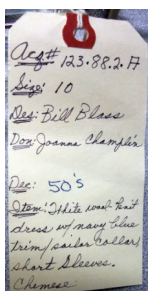 Acq# 123.88.2.A
Size: 10
Des: Bill Blass
Don: Joanna Champlin
Dec: 50's
Item: White wool knit
dress w/ navy blue
trim/sailor collar,
short sleeves.
Chemise